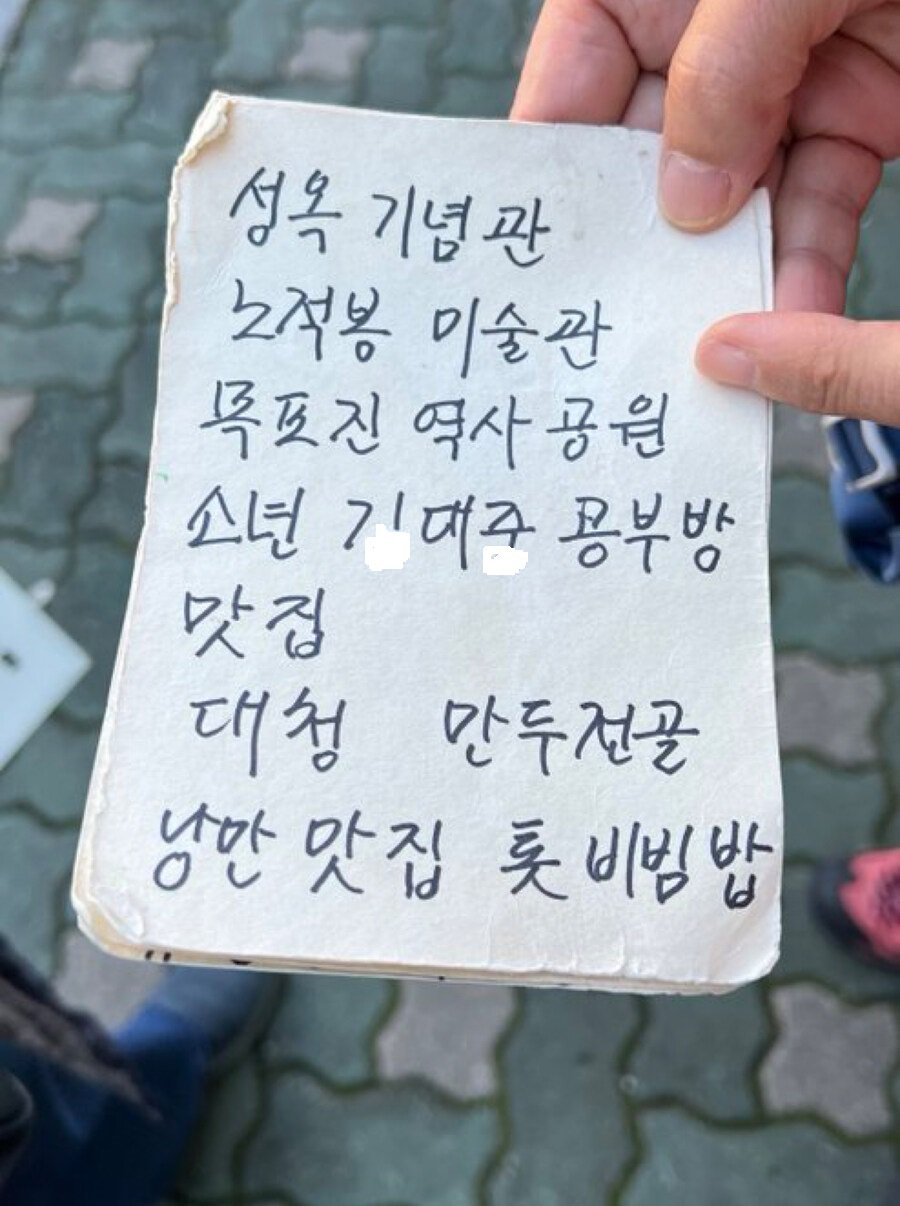 성옥 기념관
노적봉 미술관
목포진 역사 공원
소년 기대주 공부방
맛집
대청 만두전골
낭만 맛집 톳 비빔밥